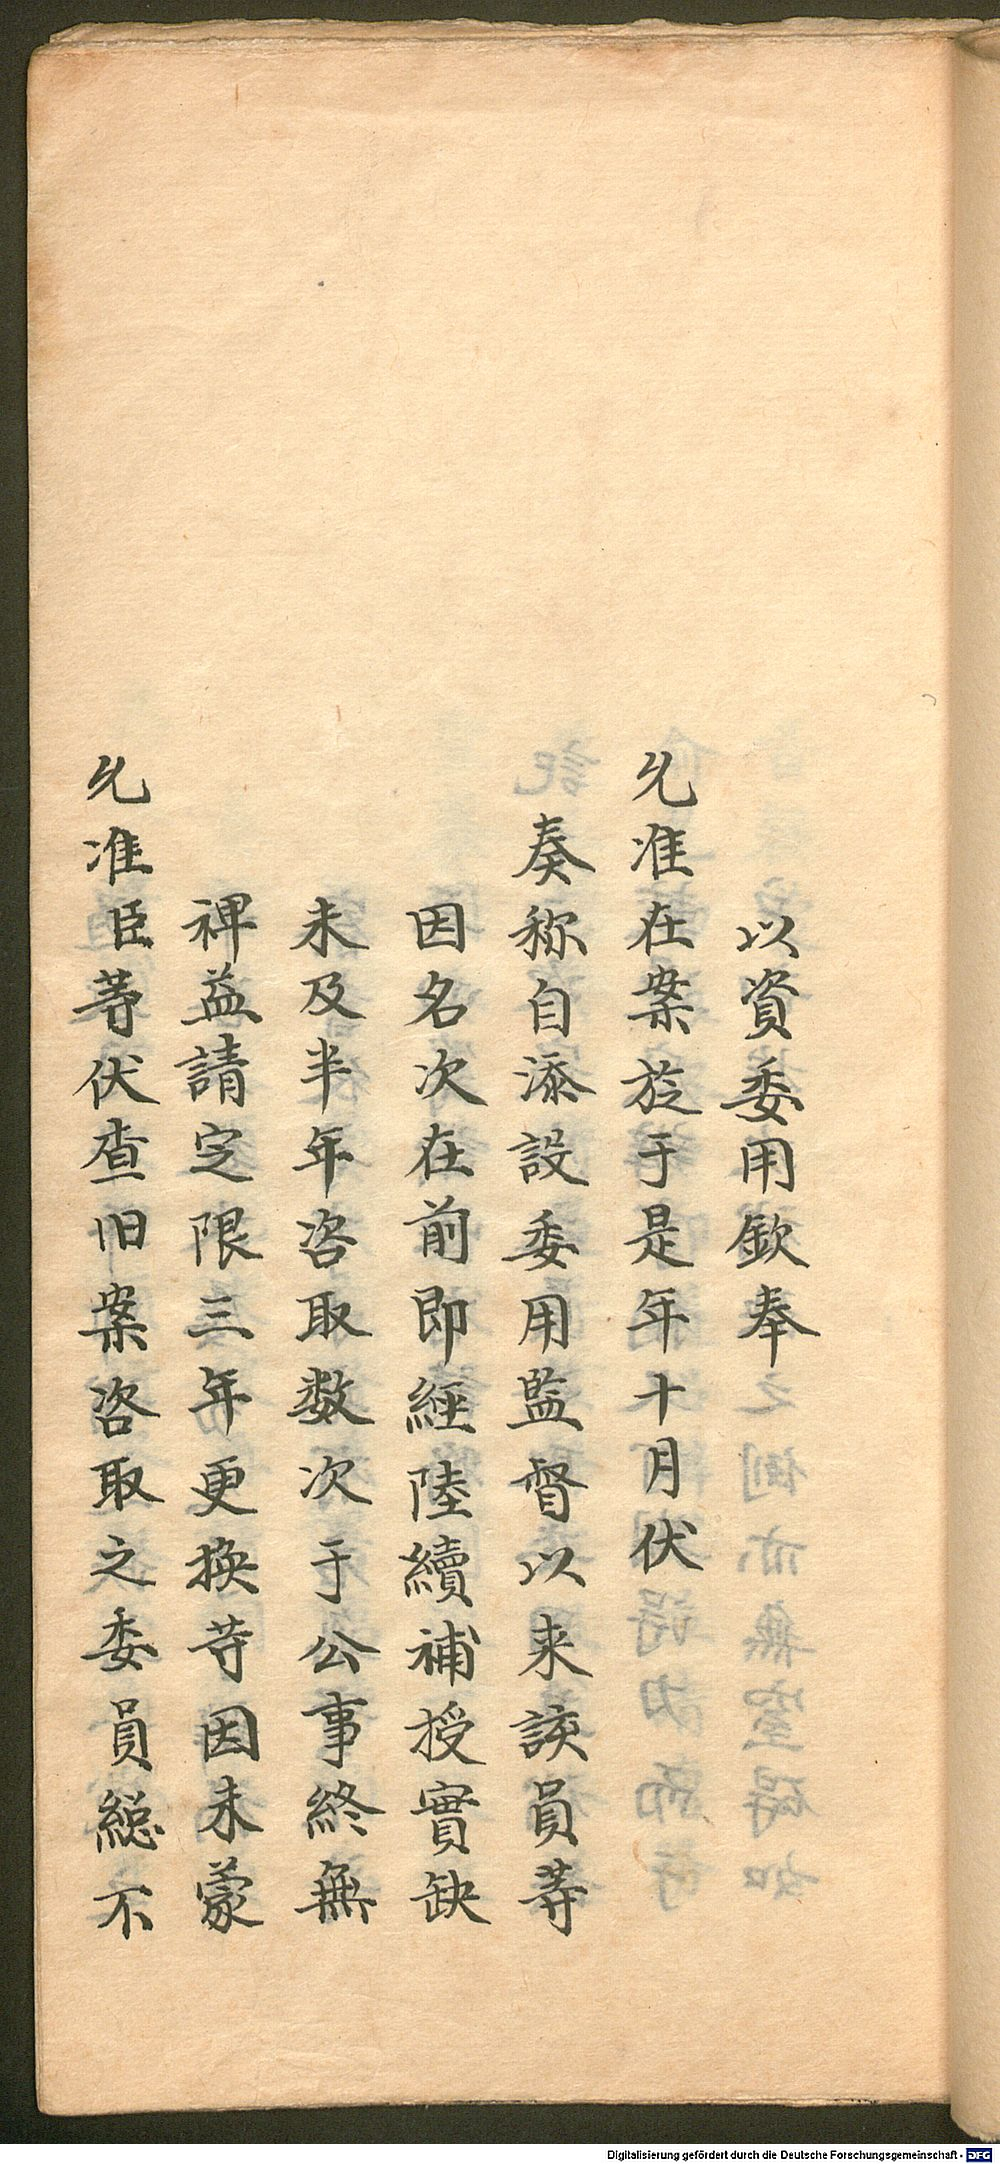 以資委用欽奉
允准在案於于是年十月伏
奏称自添設委用監督以来該員等
因名次在前即經陸續補授實缺
未及半年咨取数次于公事終無
裨益請定限三年更换苓因未蒙
允准臣等伏查旧案咨取之委員総不
Digitalisierung gefördert durch die Deutsche Forschungsgemeinschaft - DFG